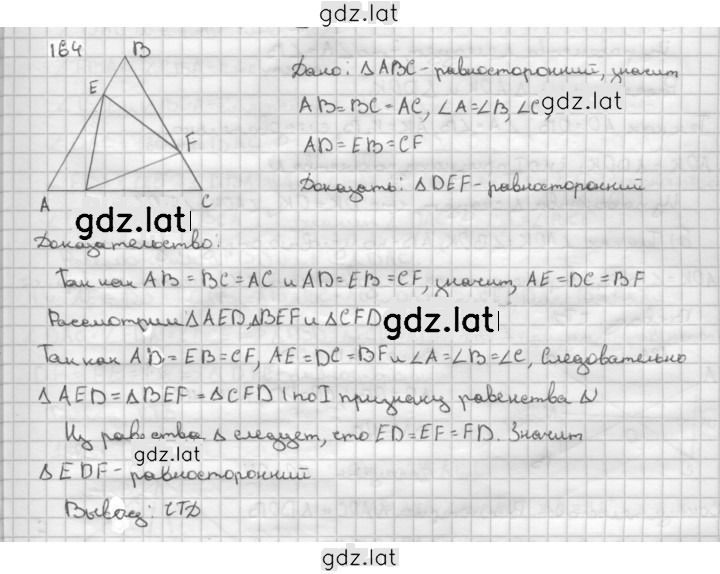 gdz.lat
164
B
E
F
A
C
Дано: Δ ABC - равносторонний, значит
AB = BC = AC, ∠A = ∠B, ∠C,
gdz.lat
AD = EB = CF
Доказать: Δ DEF - равносторонний
gdz.lat
Доказательство:
Так как AB = BC = AC и AD = EB = CF, значит, AE = DC = BF
Рассмотрим Δ AED, Δ BEF и Δ CFD
gdz.lat
Так как AD = EB = CF, AE = DC = BF и ∠A = ∠B = ∠C, Следовательно
Δ AED = Δ BEF = Δ CFD (по I признаку равенства Δ)
Из равенства Δ следует, что ED = EF = FD. Значит
gdz.lat
Δ EDF - равносторонний
Вывод: ЧТД
gdz.lat